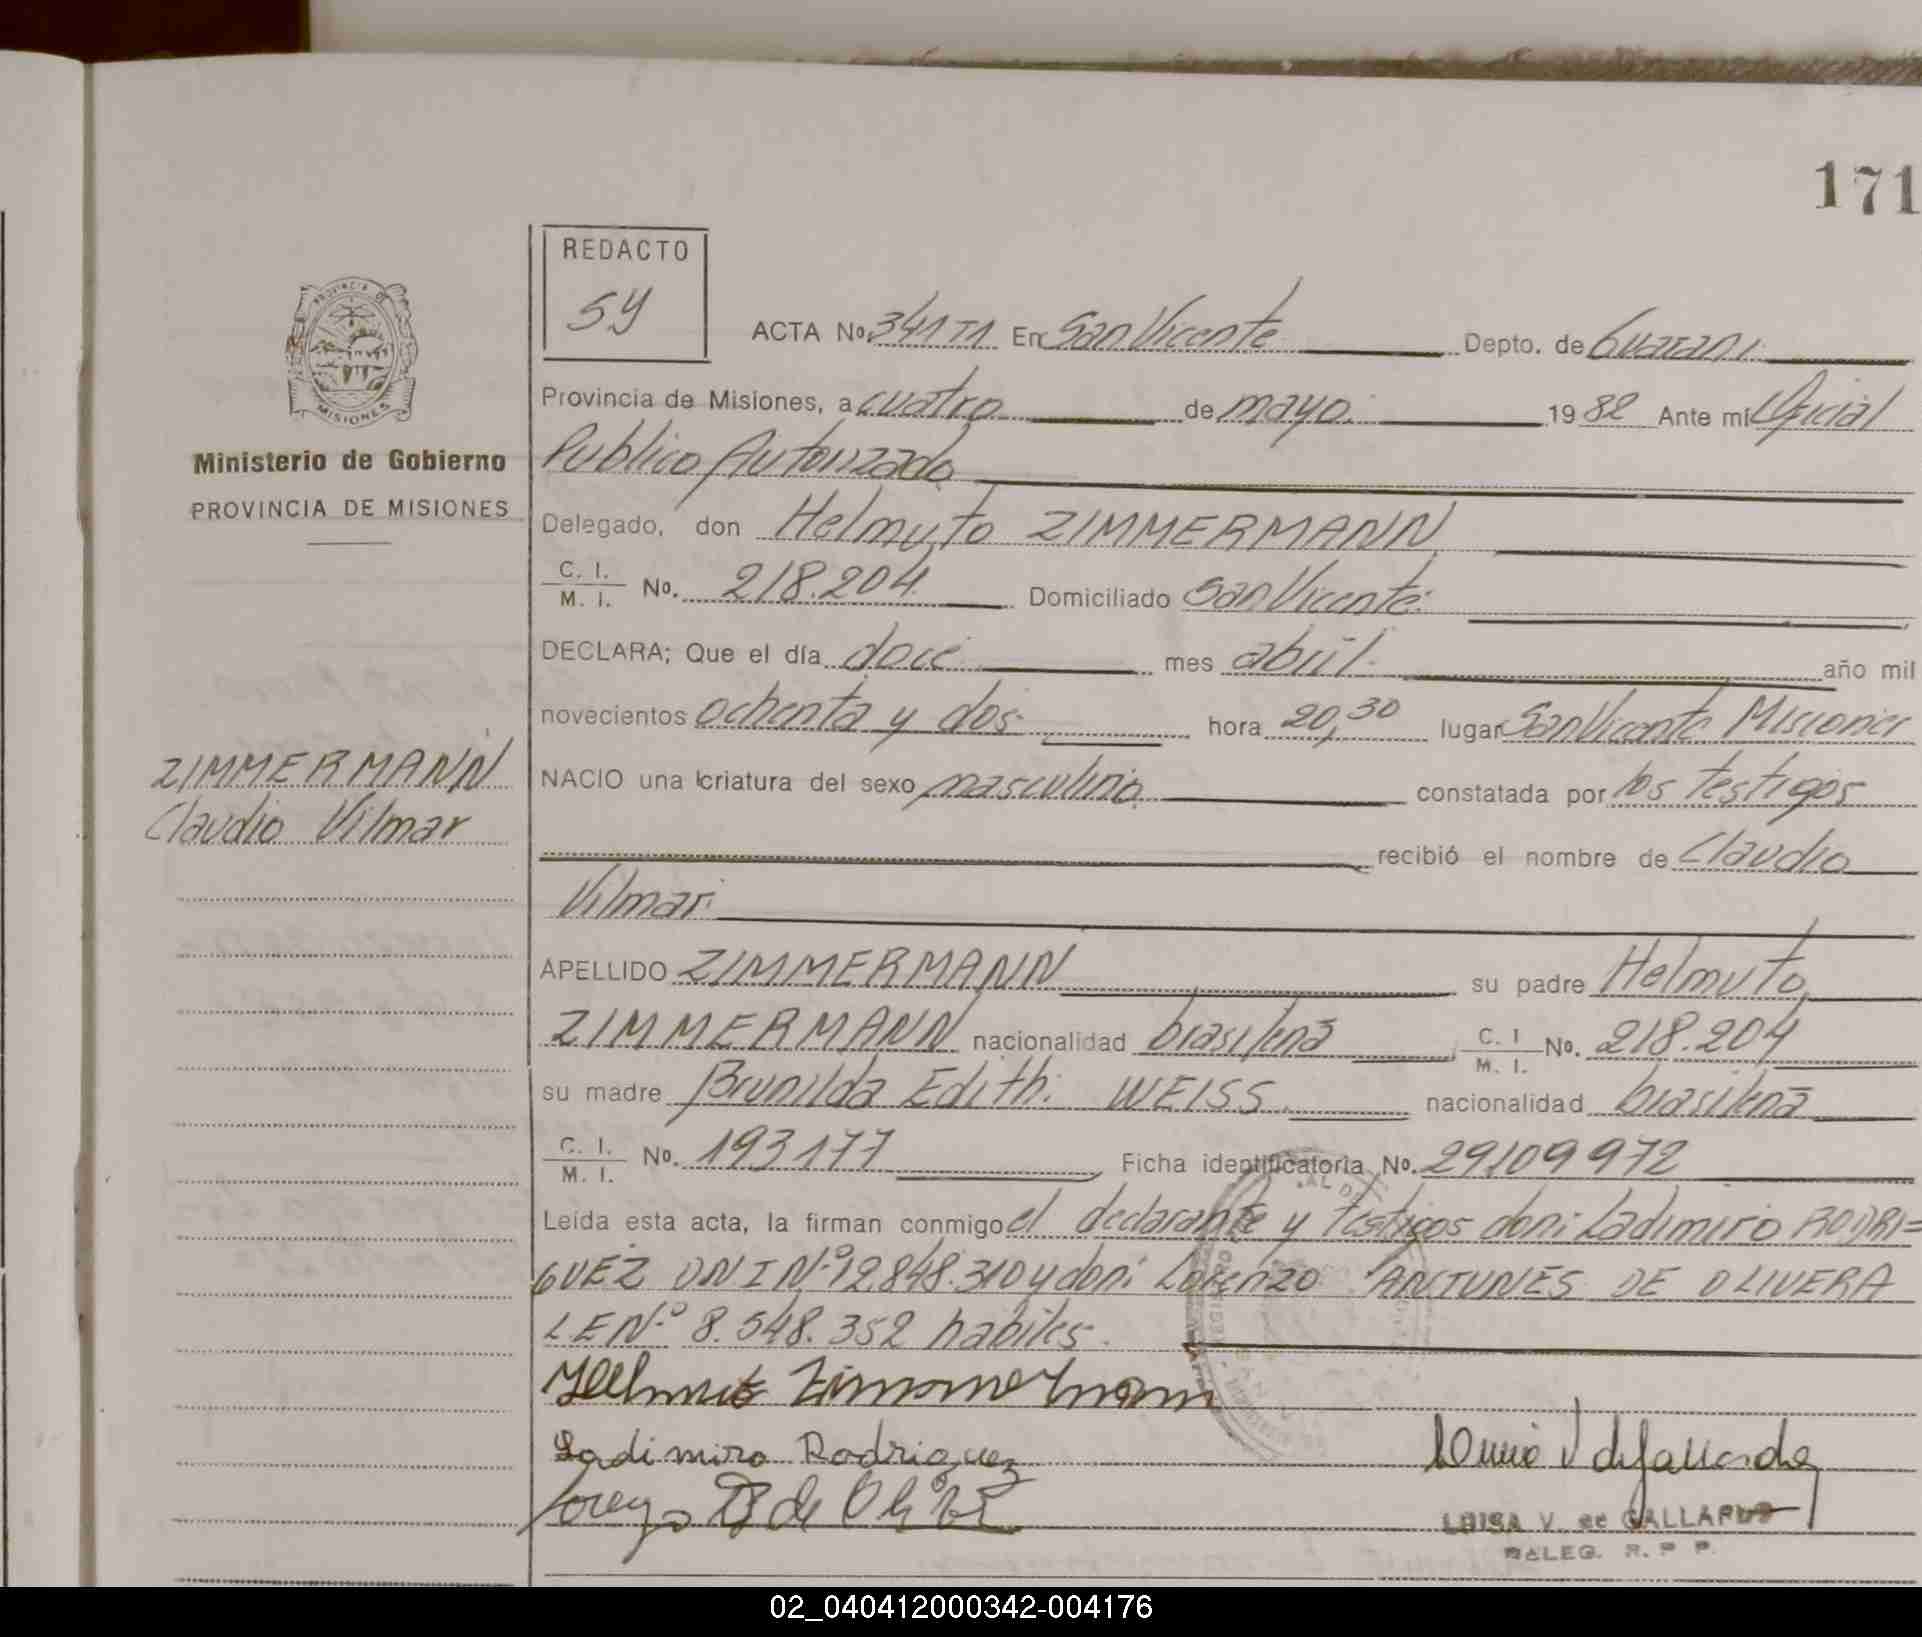 171
REDACTO
5Y
PROVINCIA DE
MISIONES
Ministerio de Gobierno
PROVINCIA DE MISIONES
ZIMMERMANN
Claudio Vilmar
ACTA No. 341 T1 En San Vicente Depto. de Guarani
Provincia de Misiones, a cuatro de mayo. 1982 Ante mí Oficial
Publico Autorizado
Delegado, don Helmuto ZIMMERMANN
C. I. / M. I. No. 218.204 Domiciliado San Vicente.
DECLARA; Que el día doce mes abril. año mil
novecientos ochenta y dos. hora 20,30 lugar San Vicente Misiones
NACIO una criatura del sexo masculino constatada por los testigos
recibió el nombre de Claudio
Vilmar.
APELLIDO ZIMMERMANN su padre Helmuto
ZIMMERMANN nacionalidad brasileña C. I / M. I. No. 218.204
su madre Brunilda Edith. WEISS nacionalidad brasileña
C. I. / M. I. No. 193177 Ficha identificatoria No. 29109972
Leída esta acta, la firman conmigo el declarante y testigos don: Ladimiro RODRI=
GUEZ DNI Nº 12.848.310 y don: Lorenzo ANTUNES DE OLIVERA
LE Nº 8.548.352 habiles.
Helmut Zimmermann
Ladimiro Rodriguez
LUISA V. de GALLARDO
DELEG. R. P P.
02_040412000342-004176